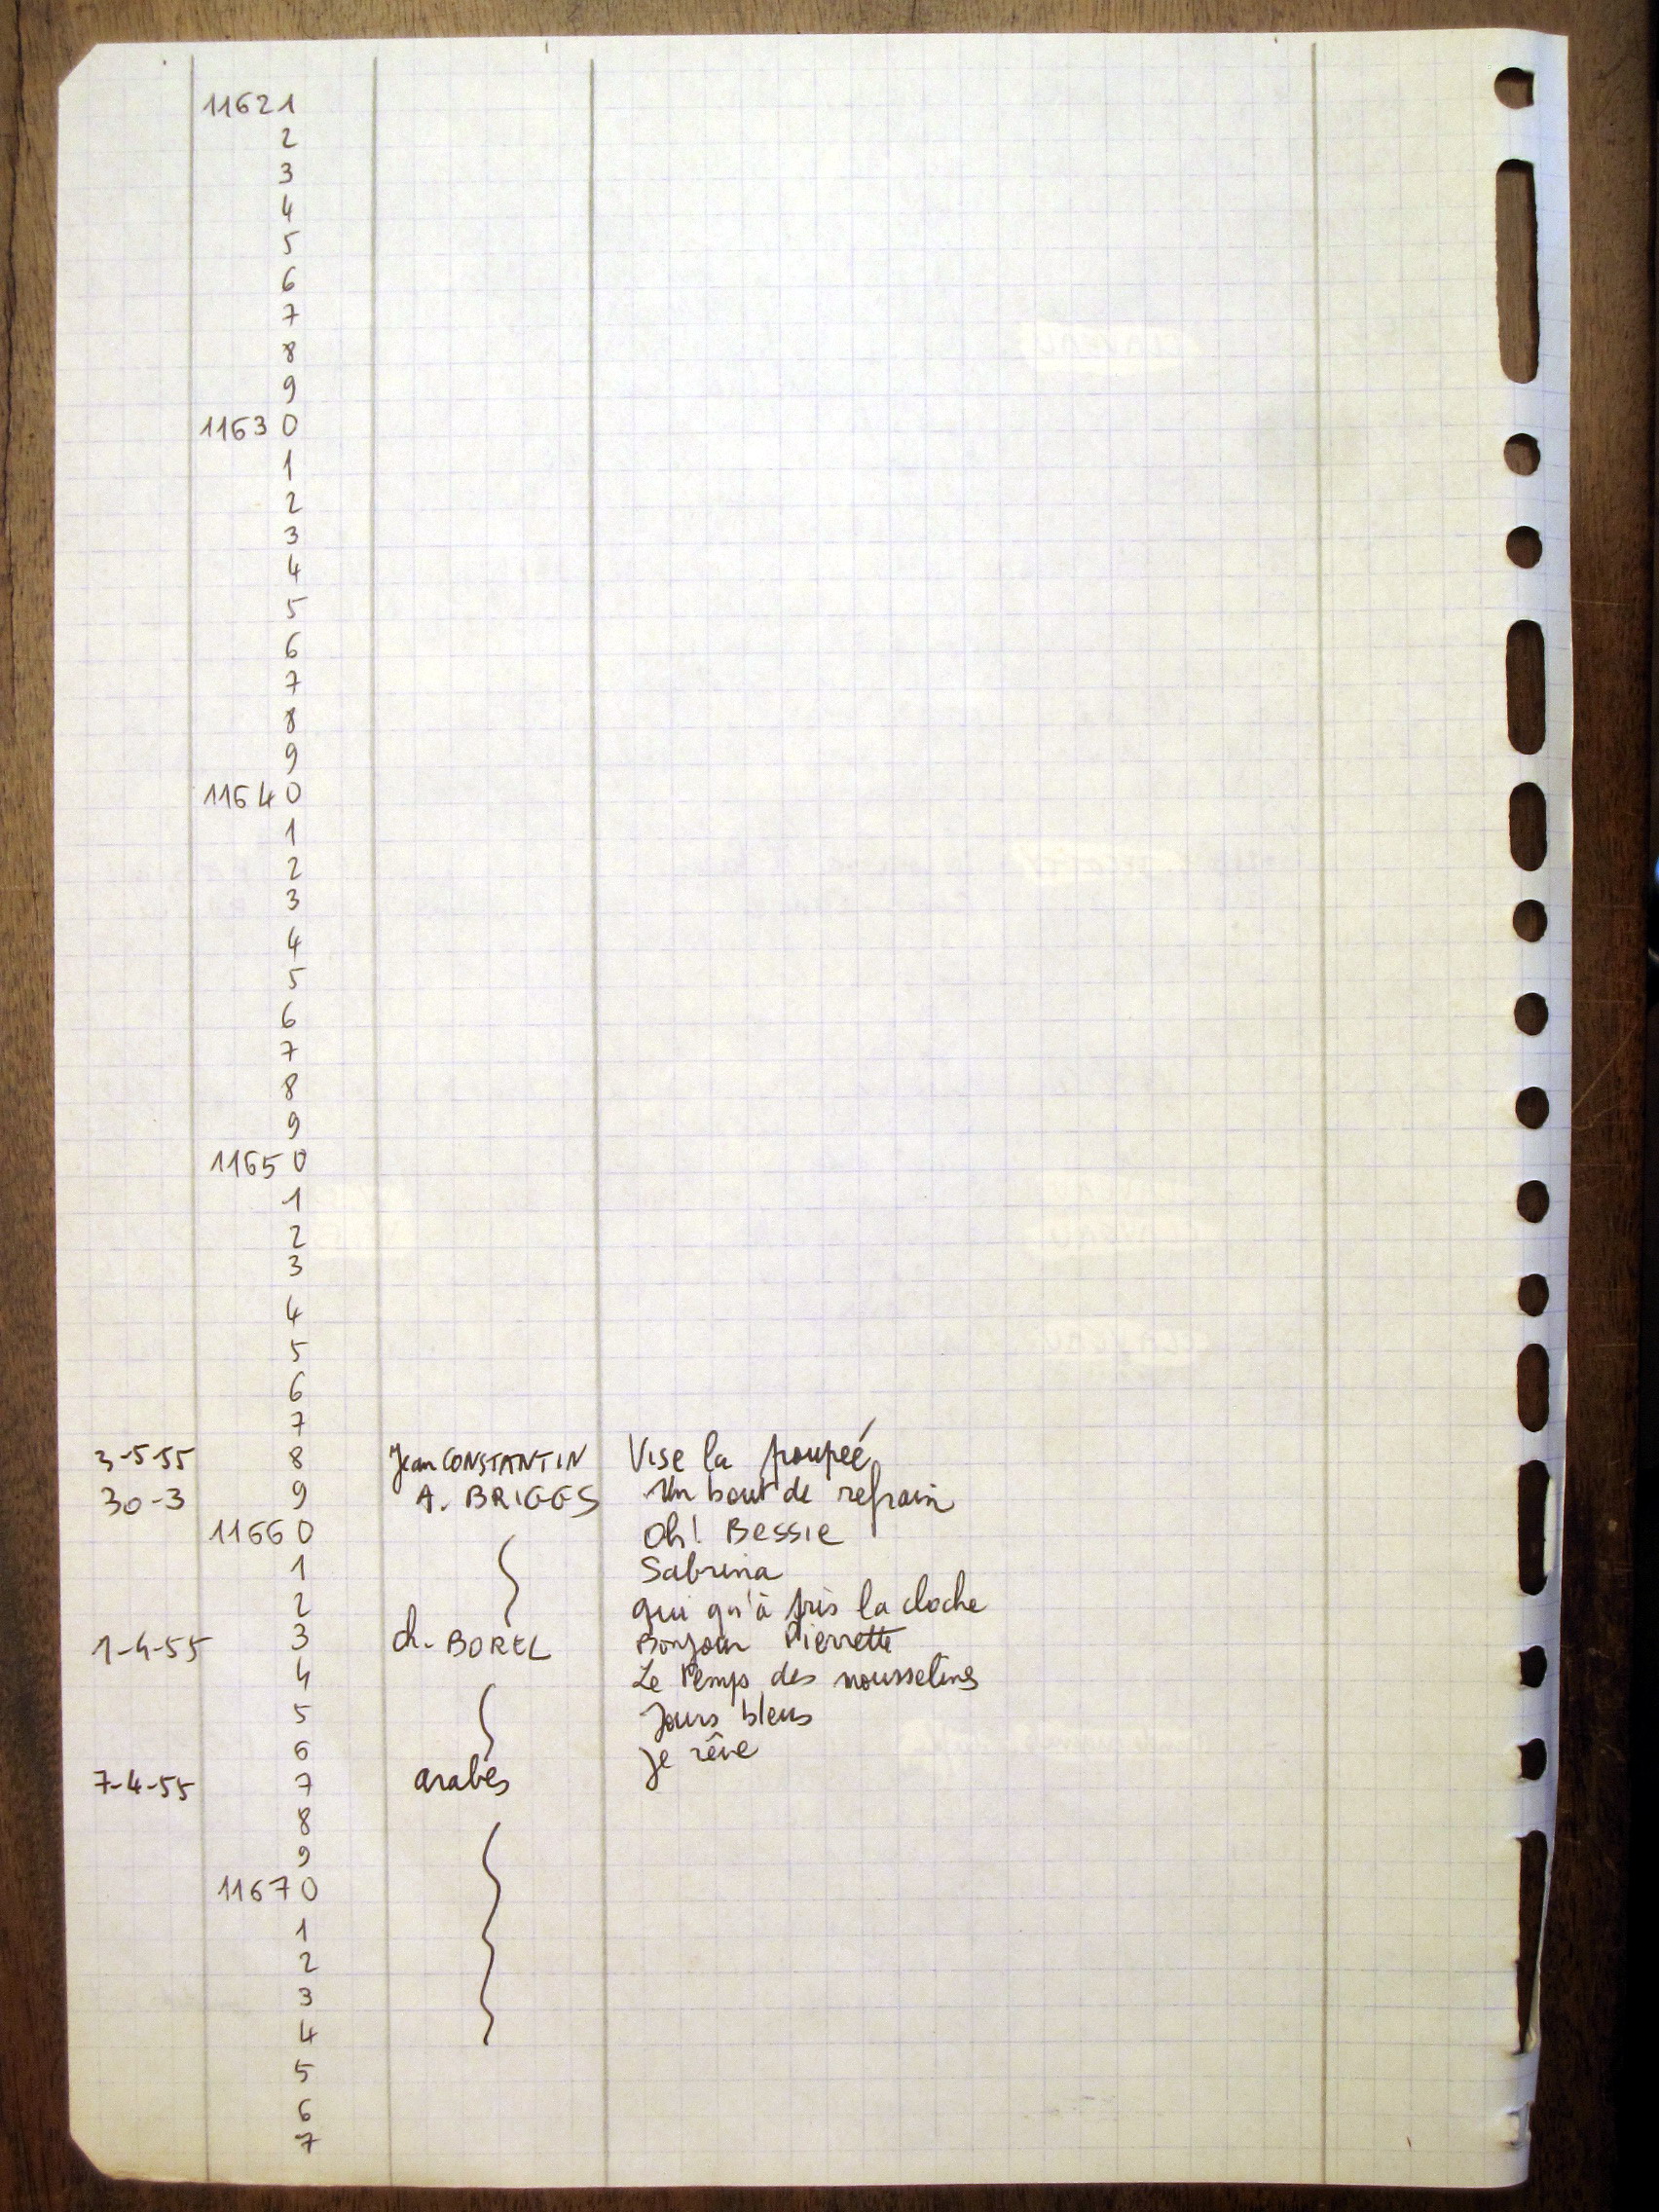 11621
2
3
4
5
6
7
8
9
11630
1
2
3
4
5
6
7
8
9
11640
1
2
3
4
5
6
7
8
9
11650
1
2
3
4
5
6
7
3-5-55 8 Jean CONSTANTIN Vise la poupée
30-3 9 A. BRIGGS Un bout de refrain
11660 Oh! Bessie
1 Sabrina
2 qui qu'à pris la cloche
1-4-55 3 ch. BOREL Bonjour Pierrette
4 Le temps des mousselines
5 Jours bleus
6 Je rêve
7-4-55 7 arabes
8
9
11670
1
2
3
4
5
6
7